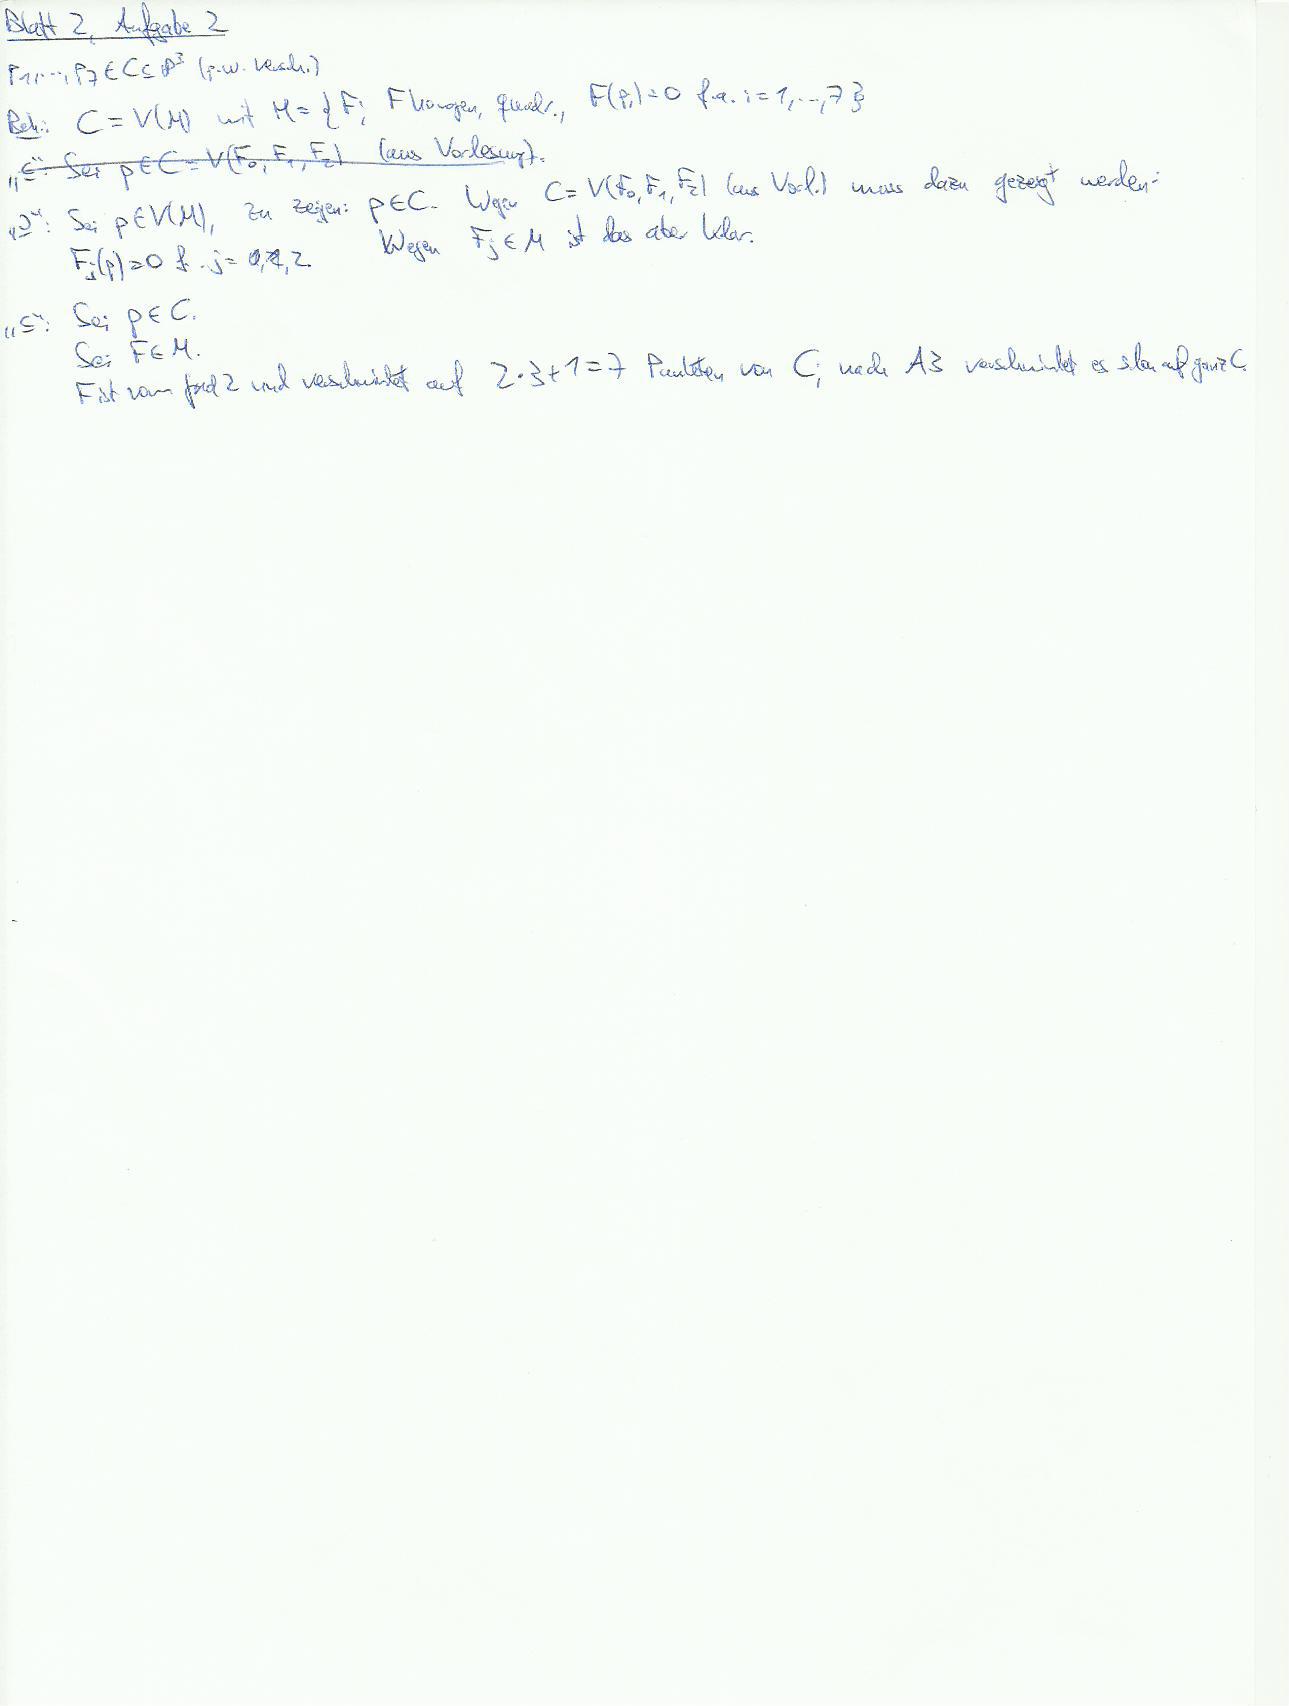 Blatt 2, Aufgabe 2
p₁, ..., p₇ ∈ C ⊆ P³ (p.w. versch.)
Beh.: C = V(M) mit M = {F; F homogen, quadr., F(pᵢ)=0 f.a. i=1,...,7}
"⊆": Sei p ∈ C = V(F₀, F₁, F₂) (aus Vorlesung).
"⊇": Sei p ∈ V(M), zu zeigen: p ∈ C. Wegen C = V(F₀, F₁, F₂) (aus Vorl.) muss dazu gezeigt werden:
Fⱼ(p)=0 f. j = 0,1,2. Wegen Fⱼ ∈ M ist das aber klar.
"⊆": Sei p ∈ C.
Sei F ∈ M.
F ist vom Grad 2 und verschwindet auf 2·3+1=7 Punkten von C; nach A3 verschwindet es schon auf ganz C.